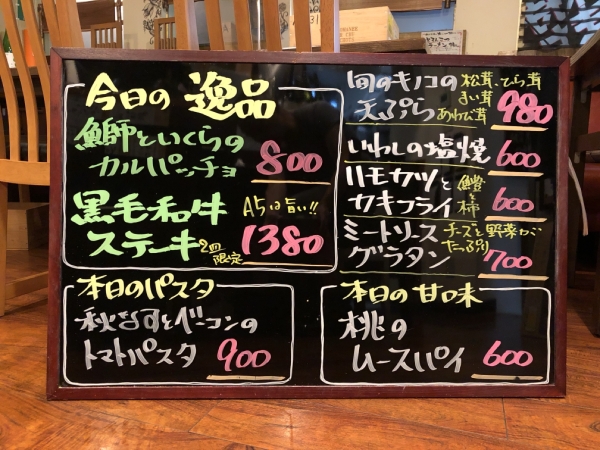 今日の 逸品
鰤といくらの
カルパッチョ 800
黒毛和牛 A5は旨い!!
ステーキ 2皿限定 1380
旬のキノコの 松茸、ひら茸
天ぷら まい茸 あわび茸 980
いわしの塩焼 600
ハモカツと
カキフライ 600
ミートソース チーズと野菜が
グラタン たっぷり 700
本日のパスタ
秋なすとベーコンの
トマトパスタ 900
本日の甘味
桃の
ムースパイ 600